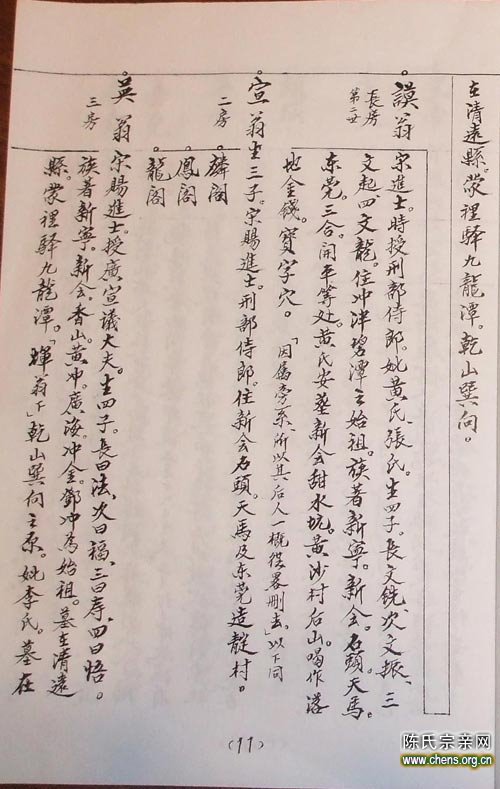 在清遠縣。蒙裡驛九龍潭。乾山巽向。
謨翁
長房
第二世
宋進士。時授刑部侍郎。妣黃氏、張氏。生四子。長文銑、次文振、三
文起、四文龍。住冲津碧潭主始祖。族著新寧。新会。石頭。天馬。
东莞。三合。開平等处。黃氏安葬新会甜水坑。黃沙村后山。喝作落
地金錢。寶字穴。「因属旁系、所以其后人一概從畧删去。」以下同
宣翁生三子。宋賜進士。刑部侍郎。住新会石頭。天馬及东莞造靛村。
二房
麟阁
鳳阁
龍阁
英翁
三房
宋賜進士。授廣宣議大夫。生四子。長曰法、次曰福、三曰寿、四曰悟。
族著新寧。新会。香山。黃冲。廣海。冲金。鄧冲為始祖。墓在清遠
縣。蒙裡驛九龍潭。「輝翁下」乾山巽向之原。妣李氏。墓在
(11)
陈氏宗亲网
www.chens.org.cn